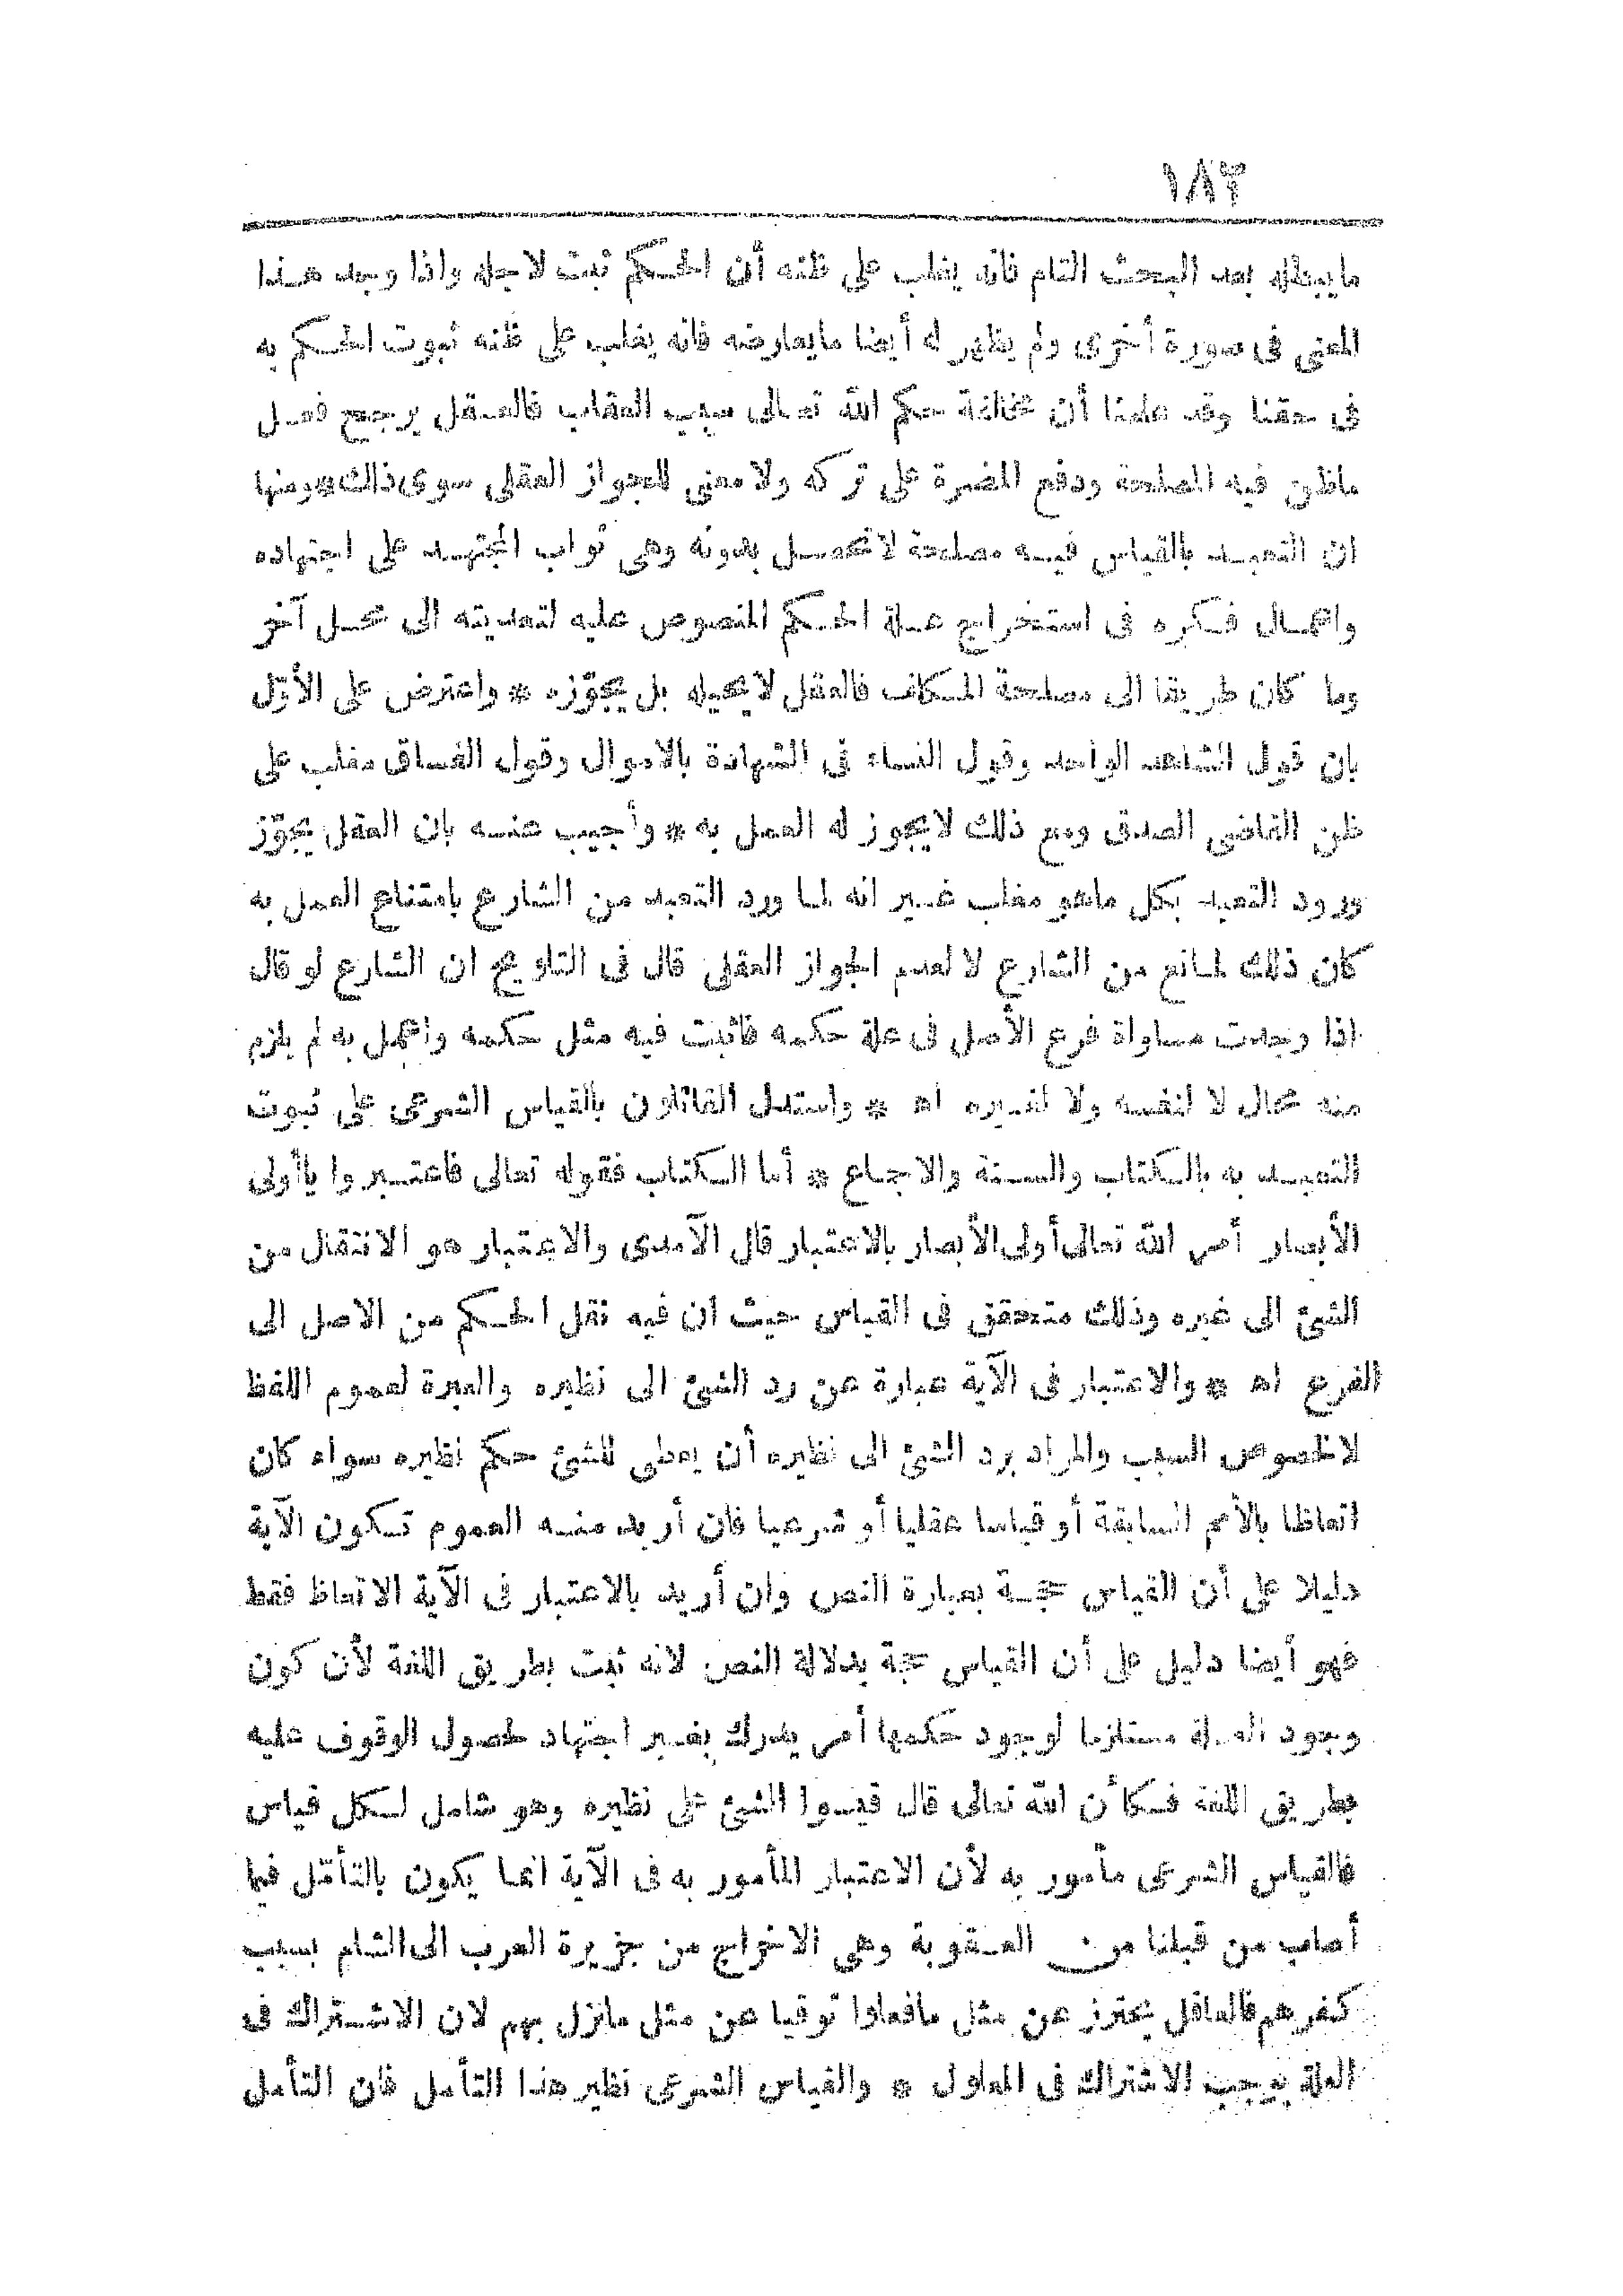 ١٨٣
مايبطله بعد البحث التام فانه يغلب على ظنه أن الحكم ثبت لاجله واذا وجد هذا
المعنى فى صورة أخرى ولم يظهر له أيضا مايعارضه فانه يغلب على ظنه ثبوت الحكم به
فى حقنا وقد علمنا أن مخالفة حكم الله تعالى سبب العقاب فالعقل يرجح فعل
ماظن فيه المصلحة ودفع المضرة على تركه ولا معنى للجواز العقلى سوى ذلك * ومنها
ان التعبد بالقياس فيه مصلحة لاتحصل بدونه وهى ثواب المجتهد على اجتهاده
واعمال فكره فى استخراج علة الحكم المنصوص عليه لتعديته الى محل آخر
وما كان طريقا الى مصلحة المكلف فالعقل لايحيله بل يجوّزه * واعترض على الأوّل
بان قول الشاهد الواحد وقول النساء فى الشهادة بالاموال وقول الفساق مغلب على
ظن القاضى الصدق ومع ذلك لايجوز له العمل به * وأجيب عنه بان العقل يجوّز
ورود التعبد بكل ماهو مغلب غير انه لما ورد التعبد من الشارع بامتناع العمل به
كان ذلك لمانع من الشارع لا لعدم الجواز العقلى قال فى التلويح ان الشارع لو قال
اذا وجدت مساواة فرع الأصل فى علة حكمه فاثبت فيه مثل حكمه واعمل به لم يلزم
منه محال لا لنفسه ولا لغيره اه * واستدل القائلون بالقياس الشرعى على ثبوت
التعبد به بالكتاب والسنة والاجماع * أما الكتاب فقوله تعالى فاعتبروا ياأولى
الأبصار أمر الله تعالى أولى الأبصار بالاعتبار قال الآمدى والاعتبار هو الانتقال من
الشئ الى غيره وذلك متحقق فى القياس حيث ان فيه نقل الحكم من الاصل الى
الفرع اه * والاعتبار فى الآية عبارة عن رد الشئ الى نظيره والعبرة لعموم اللفظ
لالخصوص السبب والمراد برد الشئ الى نظيره أن يعطى للشئ حكم نظيره سواء كان
اتعاظا بالأمم السابقة أو قياسا عقليا أو شرعيا فان أريد منه العموم تكون الآية
دليلا على أن القياس حجة بعبارة النص وان أريد بالاعتبار فى الآية الاتعاظ فقط
فهو أيضا دليل على أن القياس حجة بدلالة النص لانه ثبت بطريق اللغة لأن كون
وجود العلة مستلزما لوجود حكمها أمر يدرك بغير اجتهاد لحصول الوقوف عليه
بطريق اللغة فكأن الله تعالى قال قيسوا الشئ على نظيره وهو شامل لكل قياس
فالقياس الشرعى مأمور به لأن الاعتبار المأمور به فى الآية انما يكون بالتأمّل فيما
أصاب من قبلنا من العقوبة وهى الاخراج من جزيرة العرب الى الشام بسبب
كفرهم فالعاقل يحترز عن مثل مافعلوا توقيا عن مثل مانزل بهم لان الاشتراك فى
العلة يوجب الاشتراك فى المعلول * والقياس الشرعى نظير هذا التأمل فان التأمل